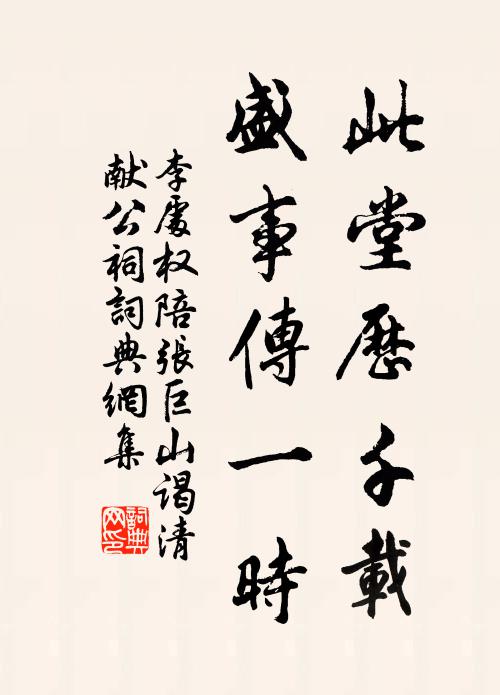 此堂歷千載
盛事傳一時
李處权陪張巨山谒清
献公祠詞典網集
詞典
网印